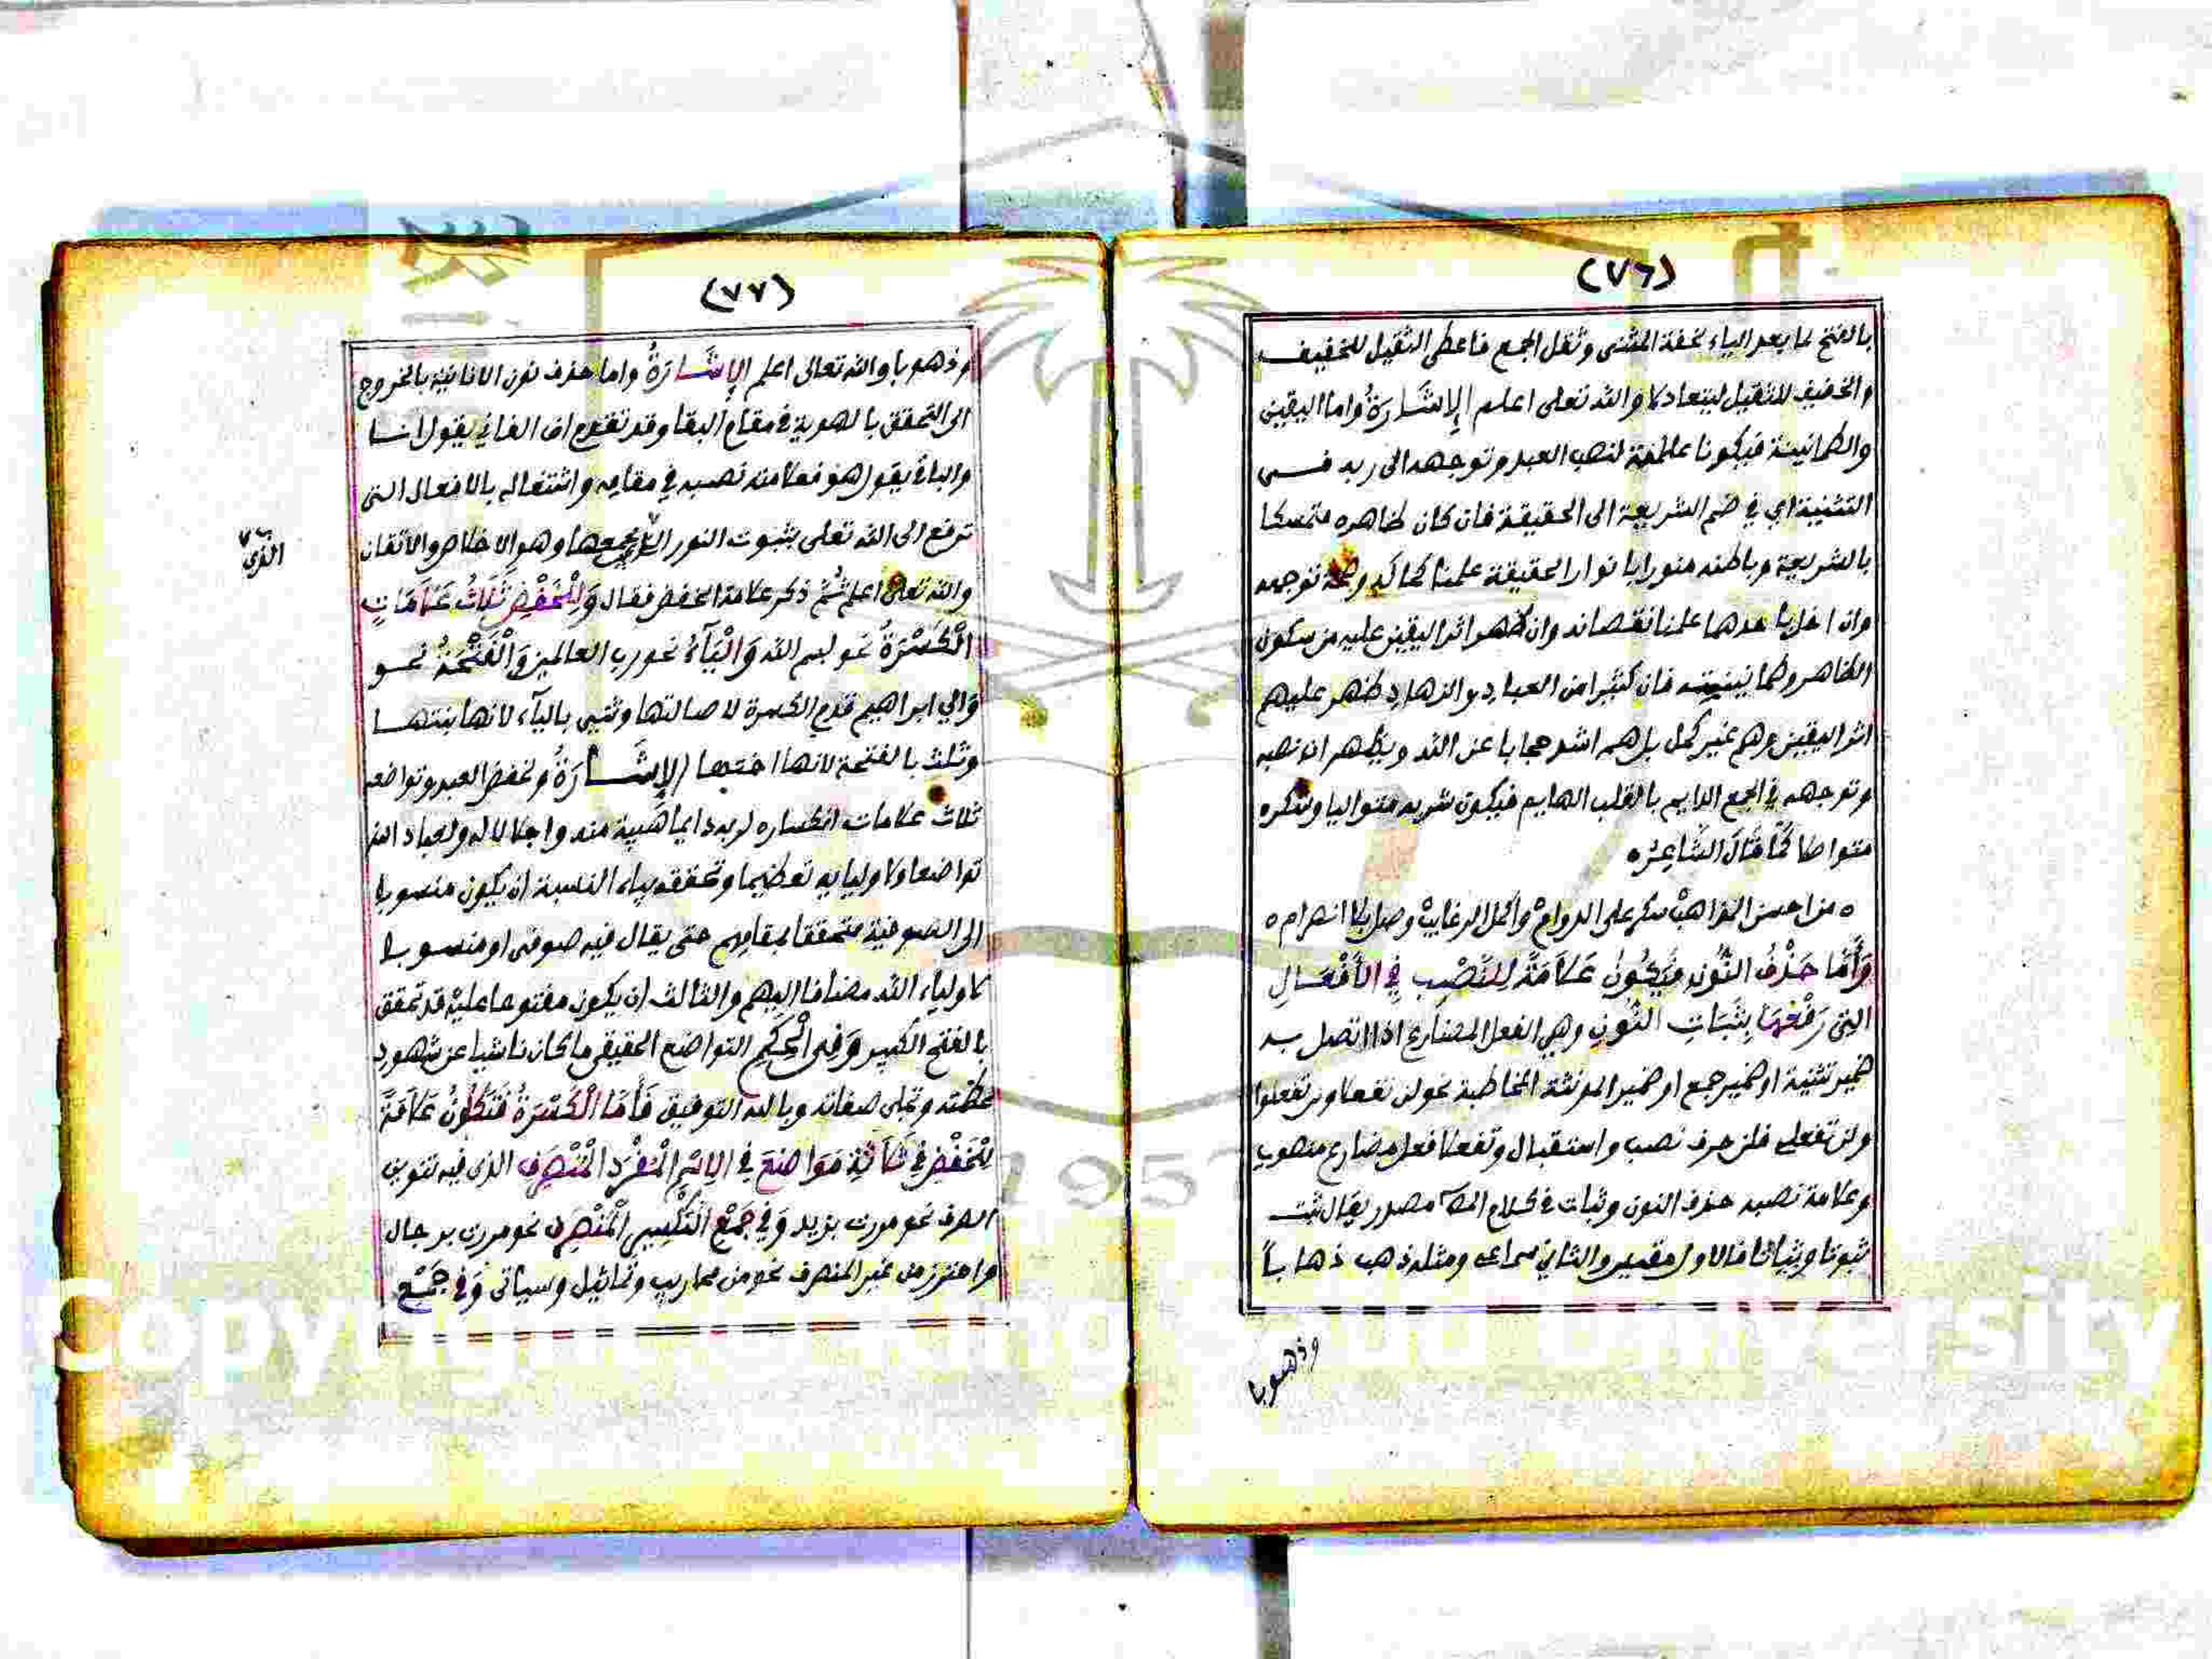 (٧٦)
بالفتح لما بعد الياء لخفة المثنى وثقل الجمع فاعطى الثقيل للخفيف
والخفيف للثقيل ليتعادلا والله تعلى اعلم الإشارة واما اليقين
والطمانينة فيكونا علامة لنصب العبد وتوجهه الى ربه فى
التثنية اي في ضم الشريعة الى الحقيقة فان كان ظاهره متمسكا
بالشريعة وباطنه منورا بانوار الحقيقة علمنا كماله وصحة توجهه
وان اخل باحدهما علمنا نقصانه وان ظهر اثر اليقين عليه من سكون
الظاهر وطمانينيته فان كثيرا من العباد والزهاد ظهر عليهم
اثر اليقين وهم غير كمل بل هم اشد حجابا عن الله ويظهر ان نصبه
وتوجهه في الجمع الدايم بالقلب الهايم فيكون شربه متواليا وسكره
متواصلا كَمَا قَالَ الشَّاعِرُ ه
ه من احسن المذاهبْ سكر على الدوامْ واكمل الرغايبْ وصل بلا انصرام ه
وَأَمَّا حَذْفُ النُّونِ فَيَكُونُ عَلاَمَةً لِلنَّصْبِ فِي الأَفْعَـالِ
التِى رَفْعُهَا بِثَبَاتِ النُّونِ وهي الفعل المضارع اذا اتصل بـه
ضمير تثنية او ضمير جمع او ضمير المونثة المخاطبة نحو لن تفعلا ولن تفعلوا
ولن تفعلى فلن حرف نصب واستقبال وتفعلا فعل مضارع منصوب
وعلامة نصبه حذف النون وثبات في كلام المص مصدر يقال ثبت
ثبوتا وثباتا فالاول مقيس والثاني سماعى ومثله ذهب ذهاباً
وذهوبا
(٧٧)
وذهوبا والله تعالى اعلم الإِشَـارَةُ واما حذف نون الانانية بالخروج
الى التحقق بالهوية في مقام البقا وقد تقدم ان الفاني يقول انـا
والباقي يقول هو فعلامة نصبه في مقامه واشتغاله بالافعال التى
ترفع الى الله تعلى بثبوت النور الذي يجمعها وهو الاخلاص والاتقان
الذي
والله تعلى اعلم ثُمَّ ذكر علامة الخفض فقال وَلِلْخَفْضِ ثَلَاثُ عَلَامَاتٍ
الْكَسْرَةُ نحو بسم الله وَالْيَآءُ نحو رب العالمين وَالْفَتْحَةُ نحـو
وَالي ابراهيم قدم الكسرة لاصالتها وثنى باليآء لانها بنتهـا
وثلث بالفتحة لانها اختها الإِشَـارَةُ ولخفض العبد وتواضعه
ثلاث علامات انكساره لربه دايما هيبة منه واجلالا له ولعباد الله
تواضعا ولاوليايه تعظيما وتحققه بياء النسبة ان يكون منسوبا
الى الصوفية متحققا بمقامهم حتى يقال فيه صوفى او منسوبا
لاولياء الله مضافا اليهم والثالث ان يكون مفتوحا عليه قد تحقق
بالفتح الكبير وَفِى الْحِكَمِ التواضع الحقيقى ما كان ناشيا عن شهود
عظمته وتجلى صفاته وبالله التوفيق فَأَمَّا الْكَسْرَةُ فَتَكُونُ عَلاَمَةً
لِلْخَفْضِ فِي ثَلَاثَةِ مَوَاضِعَ فِي الِاسْمِ الْمُفْرَدِ الْمُنْصَرِفِ الذى فيه تنوين
الصرف نحو مررت بزيد وَفِي جَمْعِ التَّكْسِيرِ الْمُنْصَرِفِ نحو مررت برجال
واحترز من غير المنصرف نحو من محاريب وتماثيل وسياتى وَفِي جَمْعِ
Copyright © King Saud University
1957